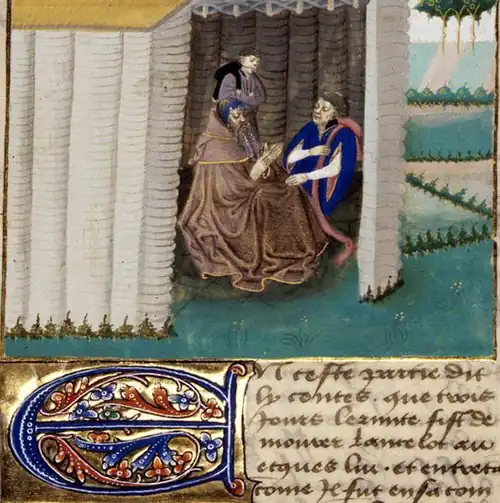 EN ceste partie dit
ly contes. que trois
Jours lermite fist de
mourer lancelot au
ecques lui. et entreta
come il fut en sa com